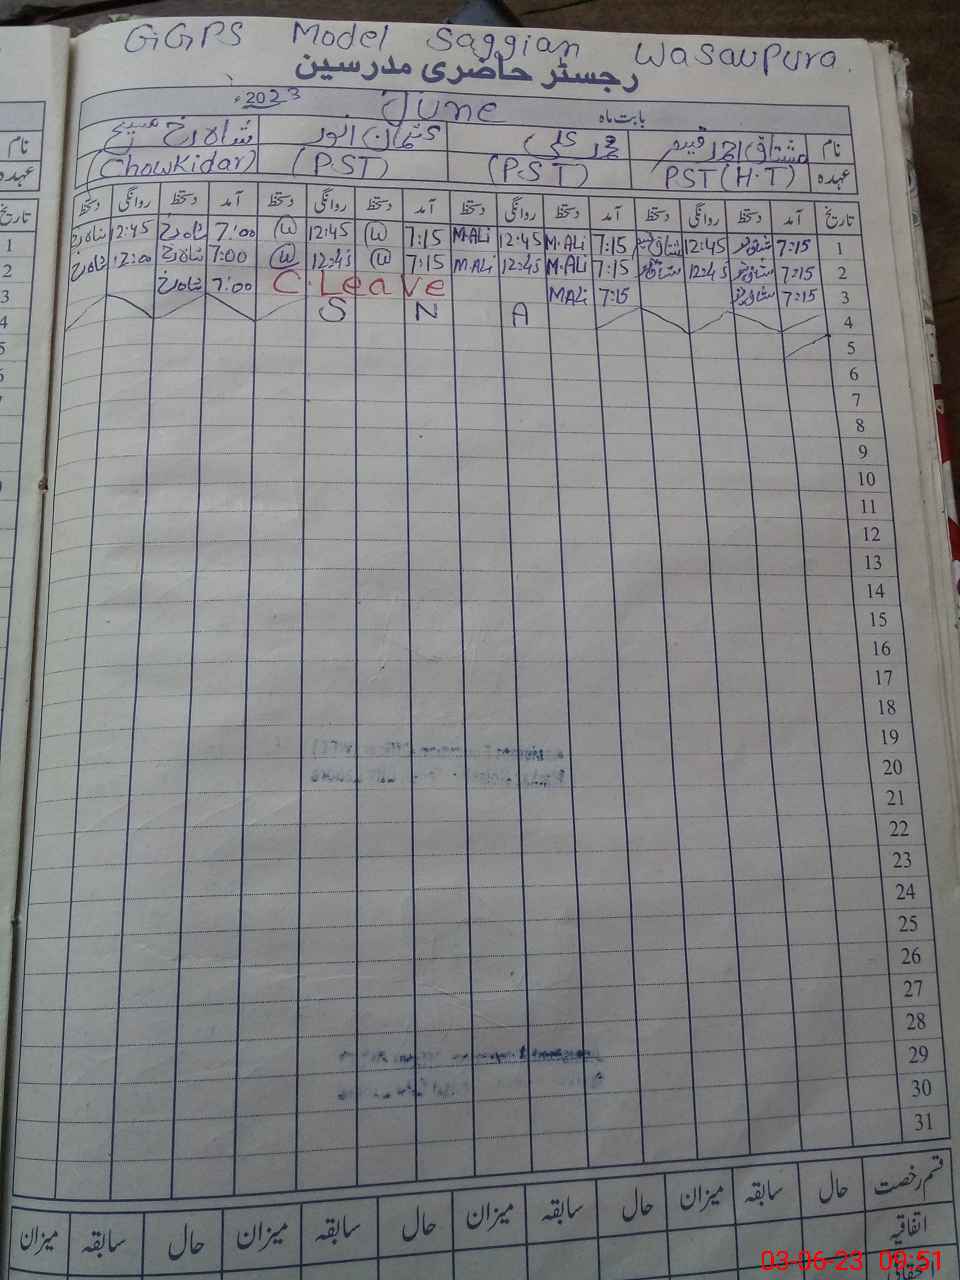 GGPS Model Saggian Wasanpura.
رجسٹر حاضری مدرسین
بابت ماہ June 2023ء
نام مشتاق احمد قیصر محمد علی عثمان انور شاہ رخ مسیح
عہدہ PST (H.T) (P.S.T) (P.S.T) (Chowkidar)
تاریخ آمد دستخط روانگی دستخط آمد دستخط روانگی دستخط آمد دستخط روانگی دستخط آمد دستخط روانگی دستخط
1 7:15 12:45 7:15 M.ALi 12:45 M.ALi 7:15 12:45 7:00 شاہ رخ 12:45 شاہ رخ
2 7:15 12:45 7:15 M.ALi 12:45 M.ALi 7:15 12:45 7:00 شاہ رخ 12:00 شاہ رخ
3 7:15 7:15 M.ALi C.Leave 7:00 شاہ رخ
4 S N A
5
6
7
8
9
10
11
12
13
14
15
16
17
18
19
20
21
22
23
24
25
26
27
28
29
30
31
قسم رخصت حال سابقہ میزان حال سابقہ میزان حال سابقہ میزان حال سابقہ میزان
اتفاقیہ
03-06-23 09:51